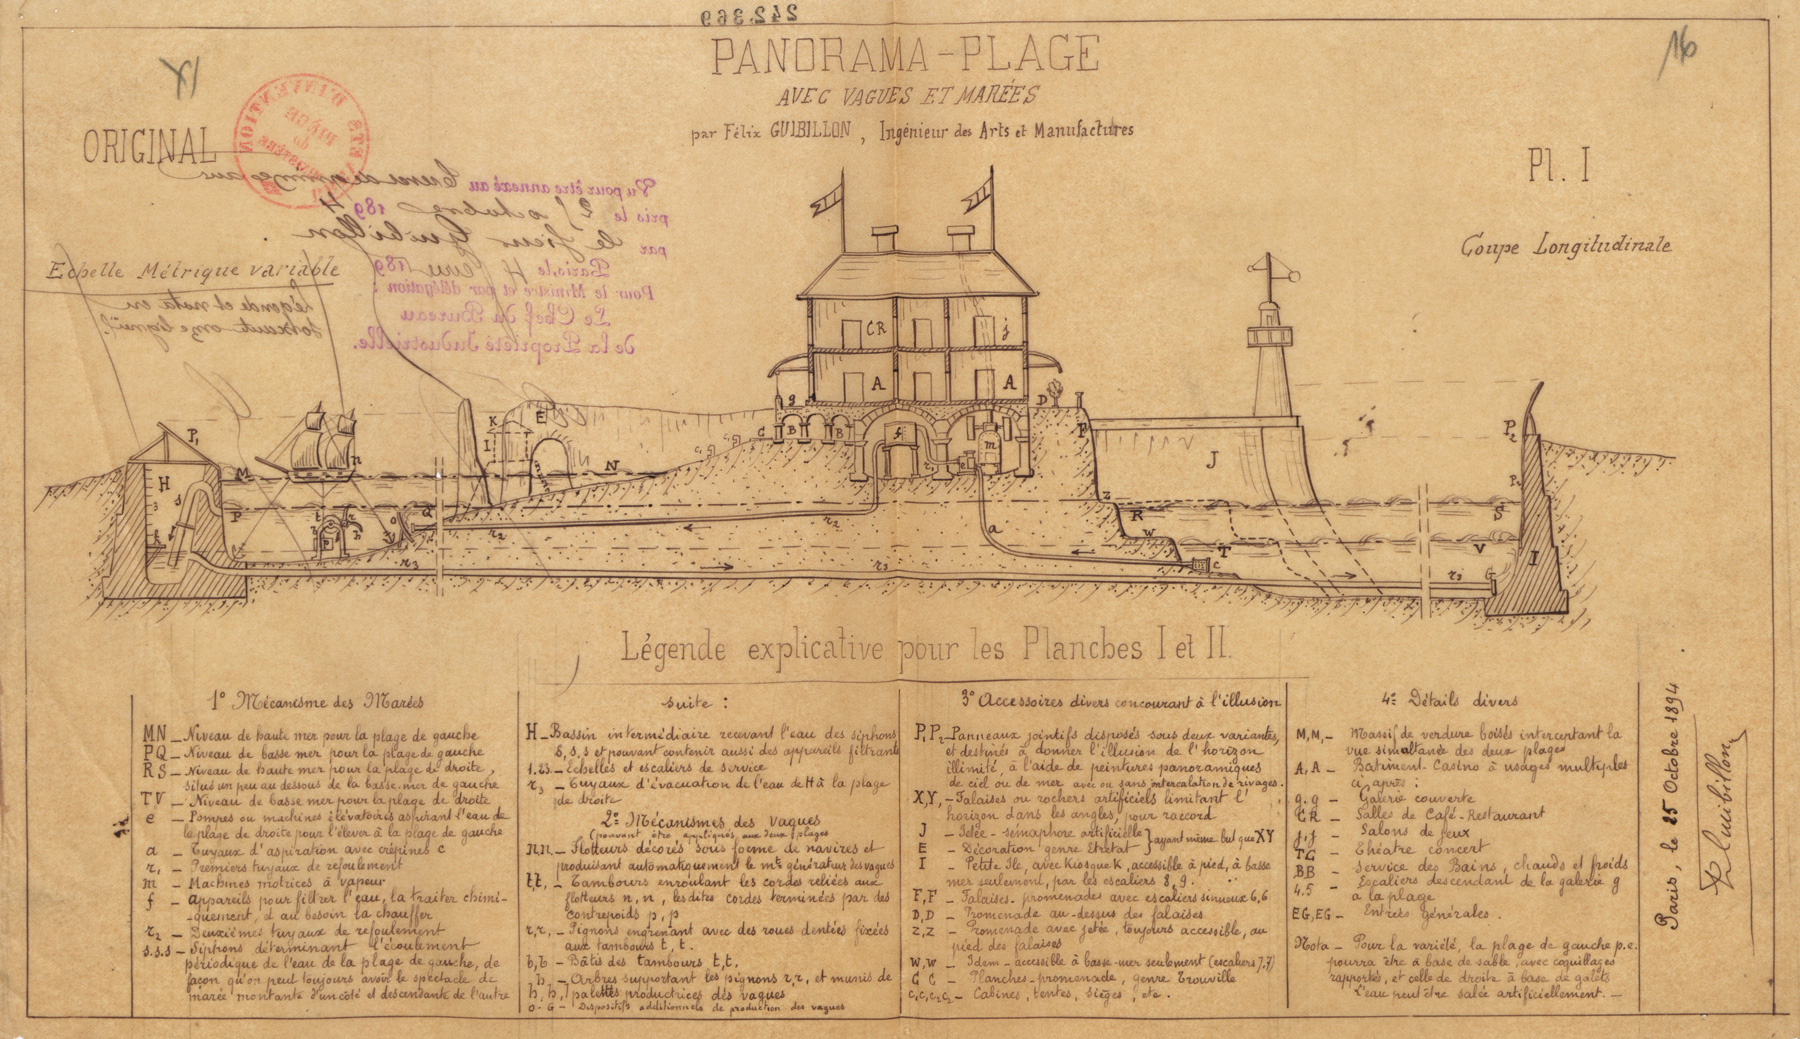 242.369
PANORAMA-PLAGE
AVEC VAGUES ET MARÉES
par Félix GUIBILLON, Ingénieur des Arts et Manufactures
16
ORIGINAL
Pl. I
Coupe Longitudinale
Echelle Métrique variable
Vu pour être annexé au
pris le 25 octobre 1894
par le sieur Guibillon
Paris, le 4 1895
Pour le Ministre et par délégation :
Le Chef du Bureau
de la Propriété Industrielle.
Légende et nota en
Légende explicative pour les Planches I et II.
1° Mécanisme des Marées
MN _ Niveau de haute mer pour la plage de gauche
PQ _ Niveau de basse mer pour la plage de gauche
RS _ Niveau de haute mer pour la plage de droite,
situs un peu au dessous de la basse-mer de gauche
TV - Niveau de basse mer pour la plage de droite
e - Pompes ou machines élévatoires aspirant l'eau de
la plage de droite pour l'élever à la plage de gauche
a - Tuyaux d'aspiration avec crépines c
r, - Premiers tuyaux de refoulement
m - Machines motrices à vapeur
f - appareils pour filtrer l'eau, la traiter chimi-
-quement, et au besoin la chauffer
r2 - Deuxièmes tuyaux de refoulement
s.s.s - Siphons déterminant l'écoulement
périodique de l'eau de la plage de gauche, de
façon qu'on peut toujours avoir le spectacle de
marée montante d'un côté et descendante de l'autre
suite :
H - Bassin intermédiaire recevant l'eau des siphons
s, s, s et pouvant contenir aussi des appareils filtrants
1.2.3. - Echelles et escaliers de service
r3 - Tuyaux d'évacuation de l'eau de H à la plage
de droite
2° Mécanismes des vagues
(pouvant être appliqués aux deux plages
n,n, - Flotteurs décorés sous forme de navires et
produisant automatiquement le mt générateur des vagues
t,t, - Tambours enroulant les cordes reliées aux
flotteurs n, n, lesdites cordes terminées par des
contrepoids p, p
r,r, - Pignons engrenant avec des roues dentées fixées
aux tambours t, t.
b,b - Bâtis des tambours t,t.
h - Arbres supportant les pignons r,r, et munis de
h, h, palettes productrices des vagues
o - G - Dispositifs additionnels de production des vagues
3° Accessoires divers concourant à l'illusion
P,P2 - Panneaux jointifs disposés sous deux variantes,
et destinés à donner l'illusion de l'horizon
illimité, à l'aide de peintures panoramiques
de ciel ou de mer avec ou sans intercalation de rivages.
X,Y, - Falaises ou rochers artificiels limitant l'
horizon dans les angles, pour raccord
J - Jetée - sémaphore artificielle } ayant même but que XY
E - Décoration genre Etretat
I - Petite Ile, avec Kiosque K, accessible à pied, à basse
mer seulement, par les escaliers 8, 9.
F,F - Falaises-promenades avec escaliers sinueux 6,6
D,D - Promenade au-dessus des falaises
z,z - Promenade avec jetée, toujours accessible, au
pied des falaises
w,w - Idem - accessible à basse-mer seulement (escaliers 7,7)
C C - Planches-promenade, genre Trouville
c,c,c2c3 - Cabines, tentes, sièges, etc.
4° Détails divers
M,M, - Massif de verdure boisés interceptant la
vue simultanée des deux plages
A,A - Batiment-Casino à usages multiples
ci après :
g.g - Galerie couverte
CR - Salles de Café-Restaurant
j,j - Salons de jeux
TC - Théâtre concert
BB - Service des Bains, chauds et froids
4.5 - Escaliers descendant de la galerie g
à la plage
EG,EG - Entrées générales.
Nota - Pour la variété, la plage de gauche p.e.
pourra être à base de sable, avec coquillages
rapportés, et celle de droite à base de galets
L'eau peut être salée artificiellement. -
Paris, le 25 Octobre 1894
Guibillon